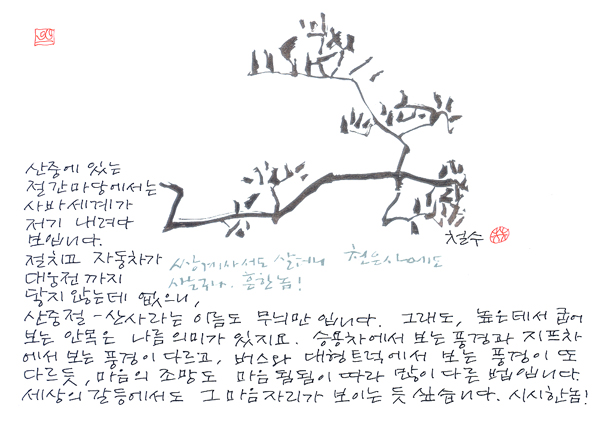 산중에 있는
절간마당에서는
사바세계가
저기 내려다
보입니다.
철수
절치고 자동차가
대웅전까지
닿지 않는데 없으니,
쌍계사서도 살더니 천은사에도
사는구나. 흔한놈!
산중절-산사라는 이름도 무늬만 입니다. 그래도, 높은데서 굽어
보는 안목은 나름 의미가 있지요. 승용차에서 보는 풍경과 지프차
에서 보는 풍경이 다르고, 버스와 대형트럭에서 보는 풍경이 또
다르듯, 마음의 조망도 마음 됨됨이 따라 많이 다른 법입니다.
세상의 갈등에서도 그 마음자리가 보이는 듯 싶습니다. 시시한놈!